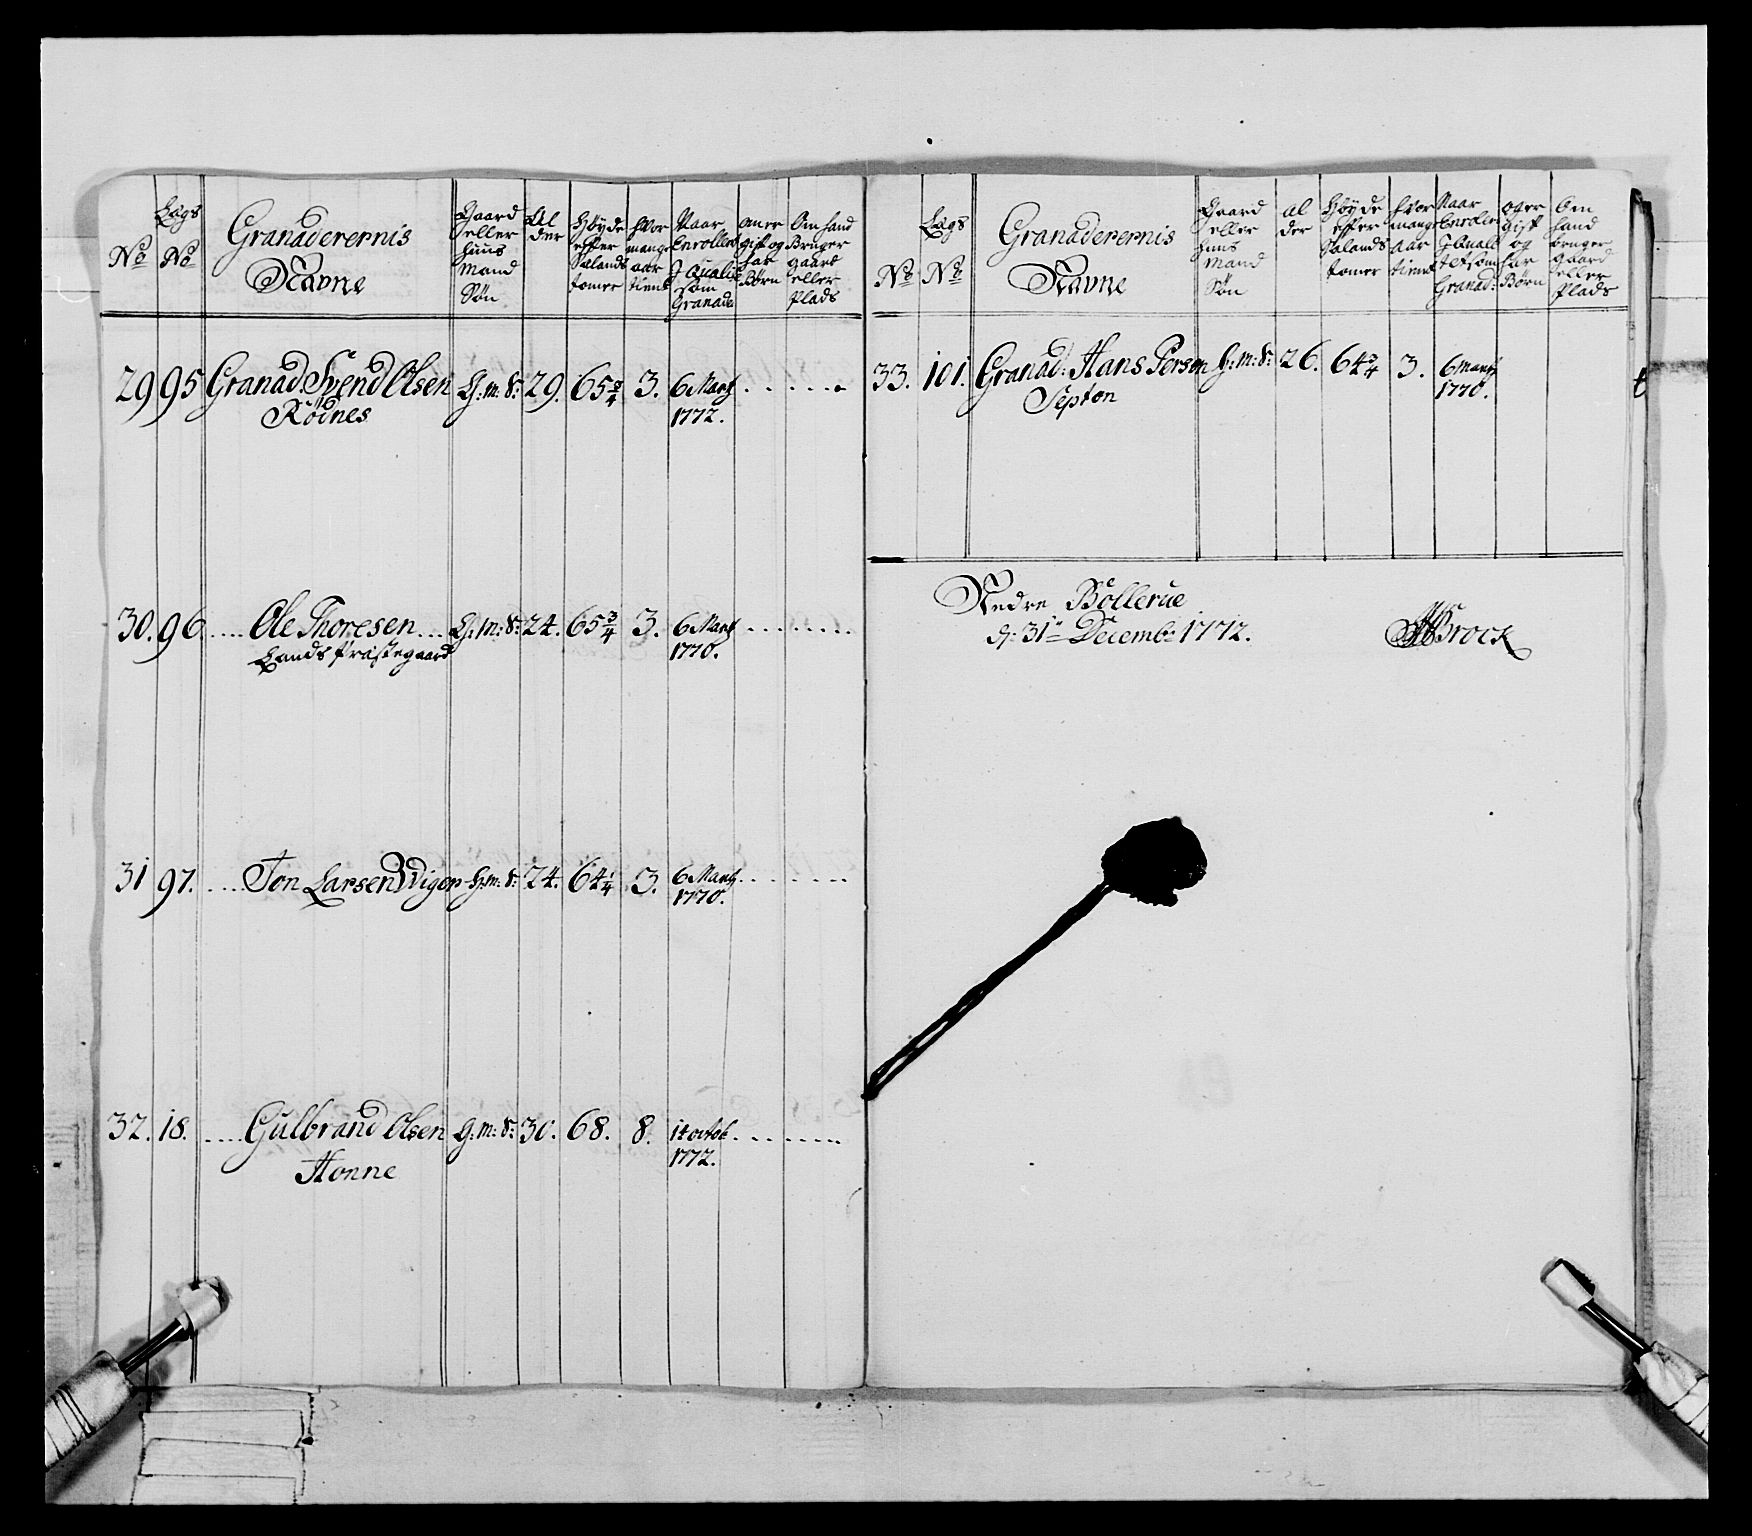 No
Lægs No
Granaderernis
Navne
Gaard
eller
Huus
Mand
Søn
Al
der
Høyde
efter
Sælands
tomer
Hvor
mange
aar
tient
Naar
Enrollert
J Qualit
som
Granader
gift og
har
Børn
Om hand
Bruger
gaard
eller
Plads
29 95 Granad Svend Olsen G: m: S: 29. 65 3/4 3. 6 Martj
Rödnes 1772.
30. 96 Ole Thoresen G: m: S: 24. 65 3/4 3. 6 Martj
Lands Præstegaard 1770.
31 97. Jon Larsen Wigen G: m: S: 24. 64 1/4 3. 6 Martj
1770.
32. 18. Gulbrand Olsen G: m: S: 30. 68. 8. 14 octob
Honne 1772.
No
Lægs No
Granaderernis
Navne
Gaard
eller
Huus
Mand
Søn
al
der
Høyde
efter
Sælands
tomer
Hvor
mange
Aar
tient
Naar
Enrollert
J Qualit
som
Granad:
og er
gift
og
har
Børn
Om
hand
bruger
gaard
eller
Plads
33. 101. Granad: Hans Person G: m: S: 26. 64 3/4 3. 6 Martj
Septon 1770.
Nedre Böllerue
d: 31te Decembr 1772.
Brock